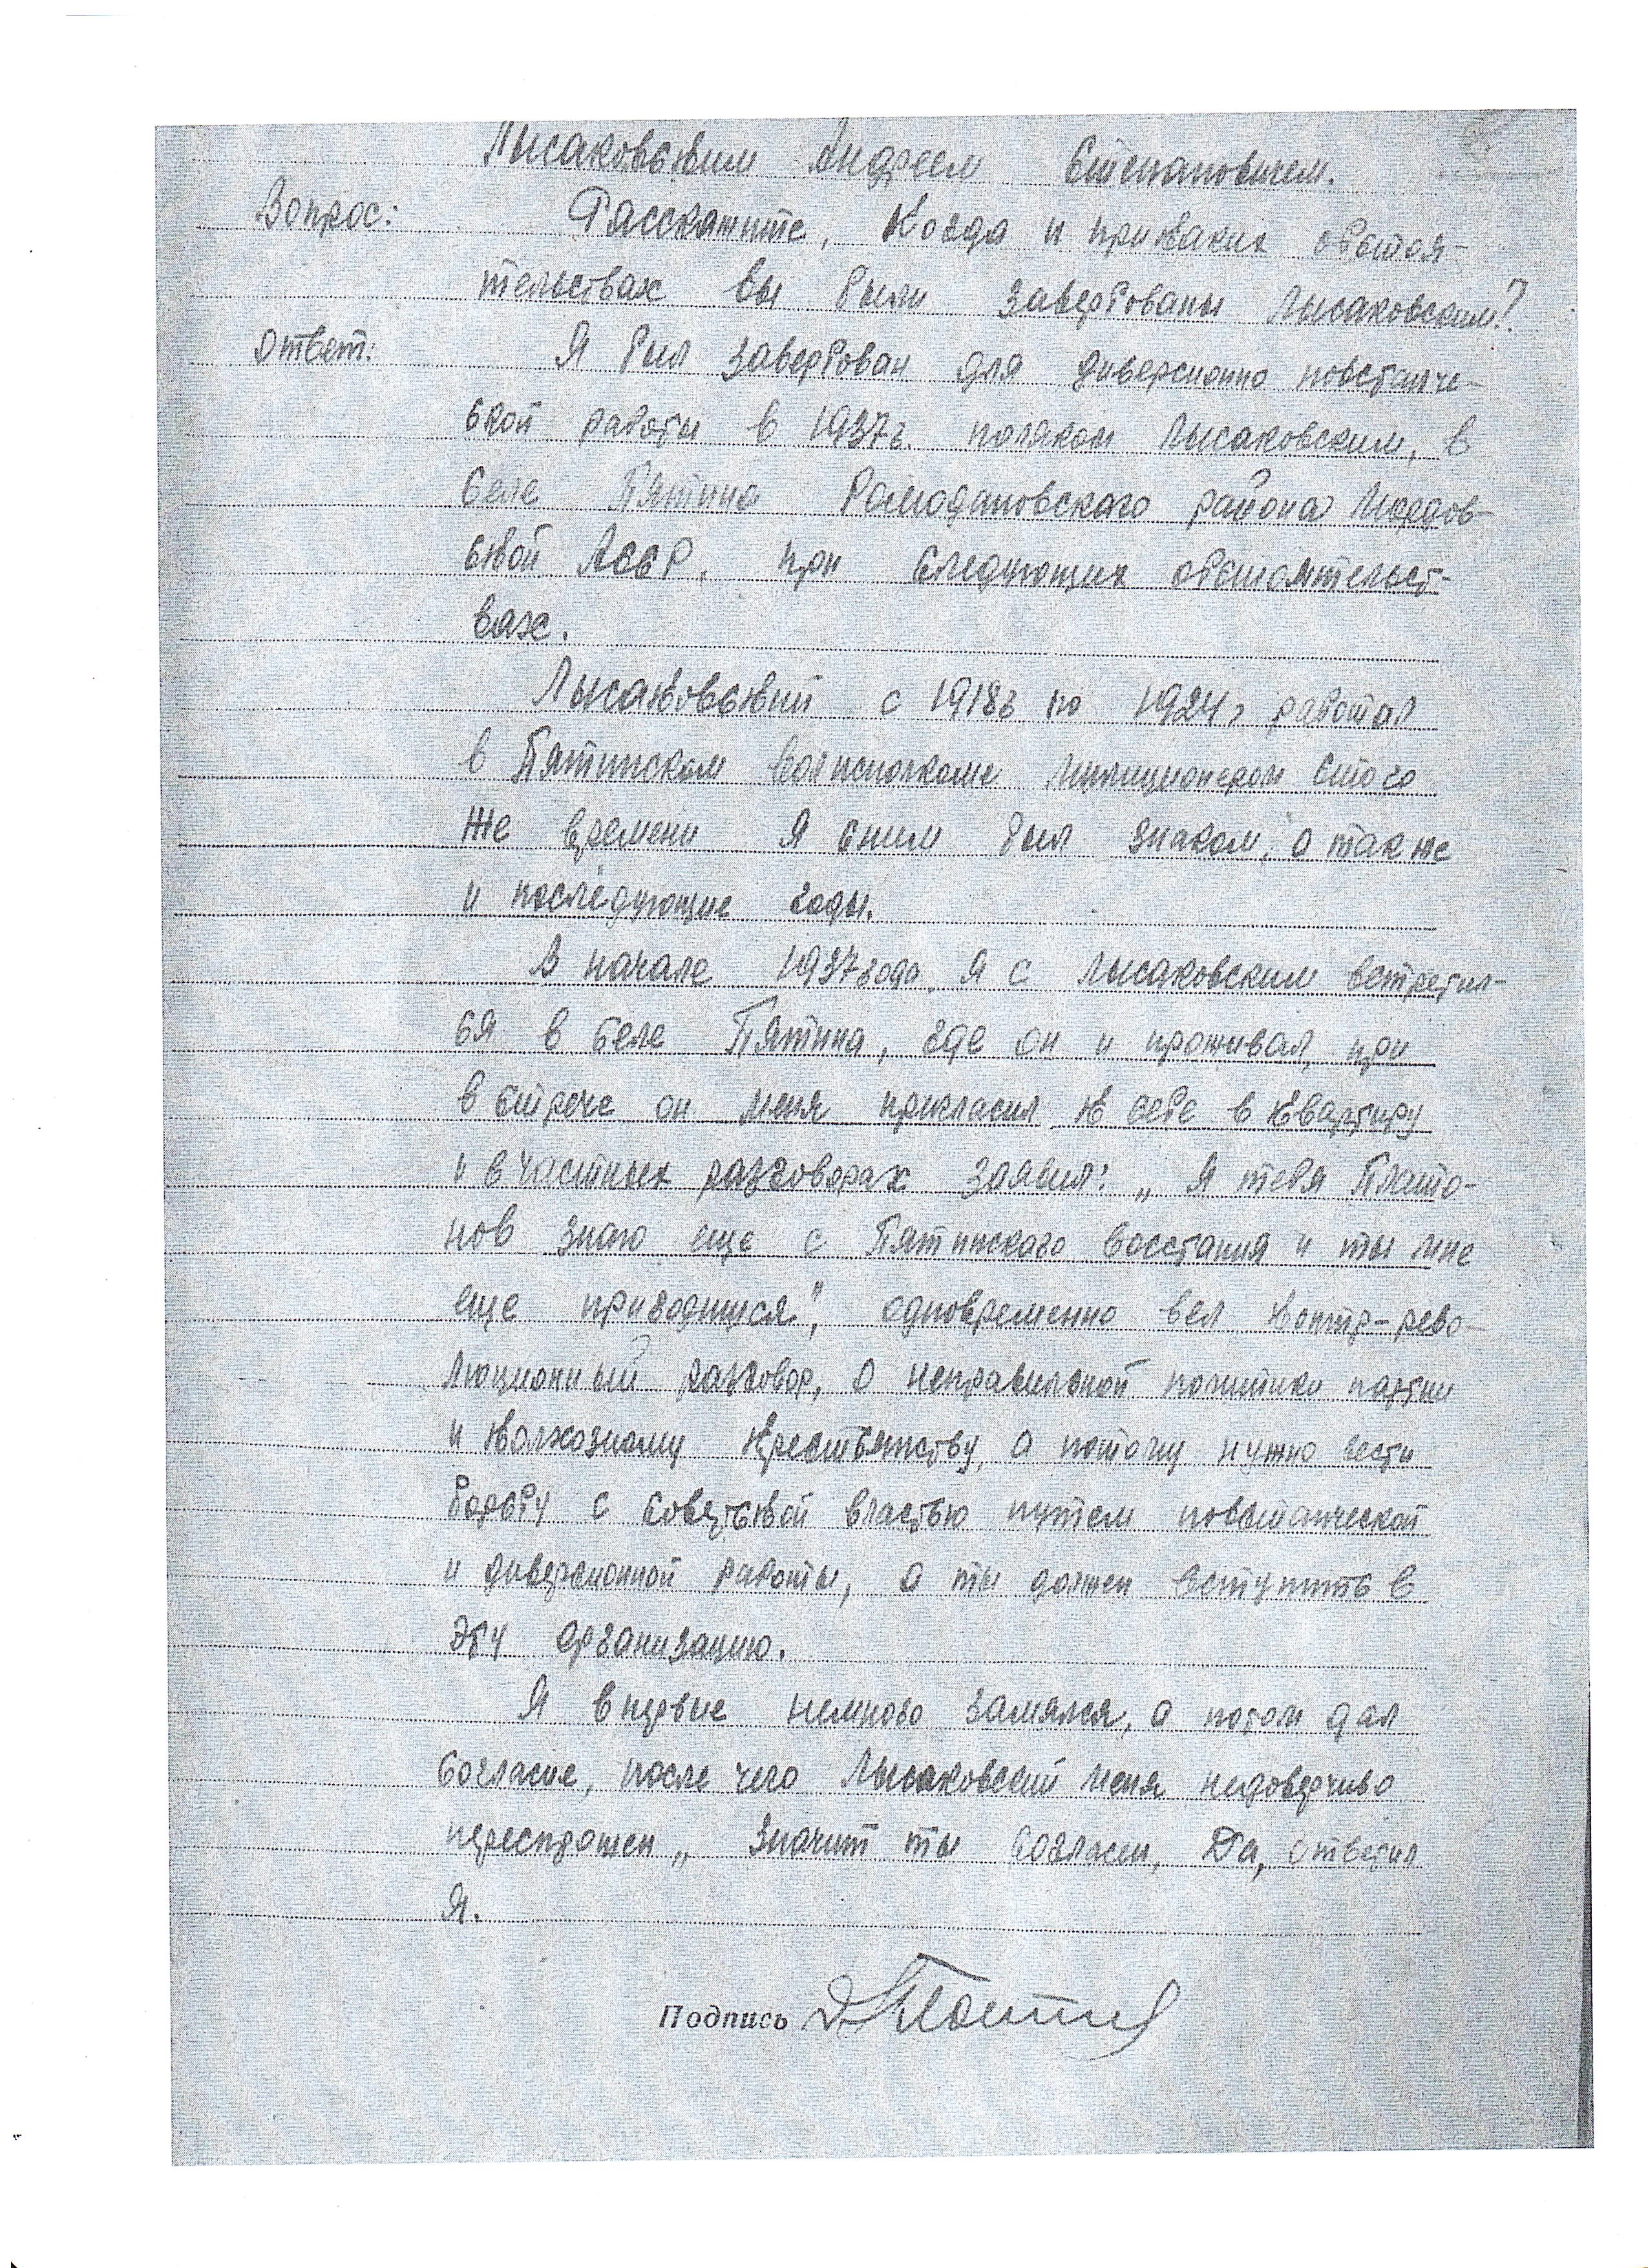 Лысаковским Андреем Степановичем.
Вопрос: Расскажите, когда и при каких обстоя-
тельствах вы были завербованы Лысаковским?
Ответ: Я был завербован для диверсионно повстанче-
ской работы в 1937 г. поляком Лысаковским, в
селе Пятина Ромодановского района Мордов-
ской АССР, при следующих обстоятельст-
вах.
Лысаковский с 1918 г по 1924 г работал
в Пятинском волисполкоме милиционером с того
же времени я с ним был знаком, а также
и последующие годы.
В начале 1937 года я с Лысаковским встретил-
ся в селе Пятина, где он и проживал, при
встрече он меня пригласил к себе в квартиру
и в частных разговорах заявил: „Я тебя Плато-
нов знаю еще с Пятинского восстания и ты мне
еще пригодишся", одновременно вел контр-рево-
люционный разговор, о неправильной политики партии
и колхозному крестьянству, а потому нужно вести
борьбу с советской властью путем повстанческой
и диверсионной работы, а ты должен вступить в
эту организацию.
Я впервые немного замялся, а потом дал
согласие, после чего Лысаковский меня недоверчиво
переспрошен „ Значит ты согласен, Да, ответил
Я.
Подпись